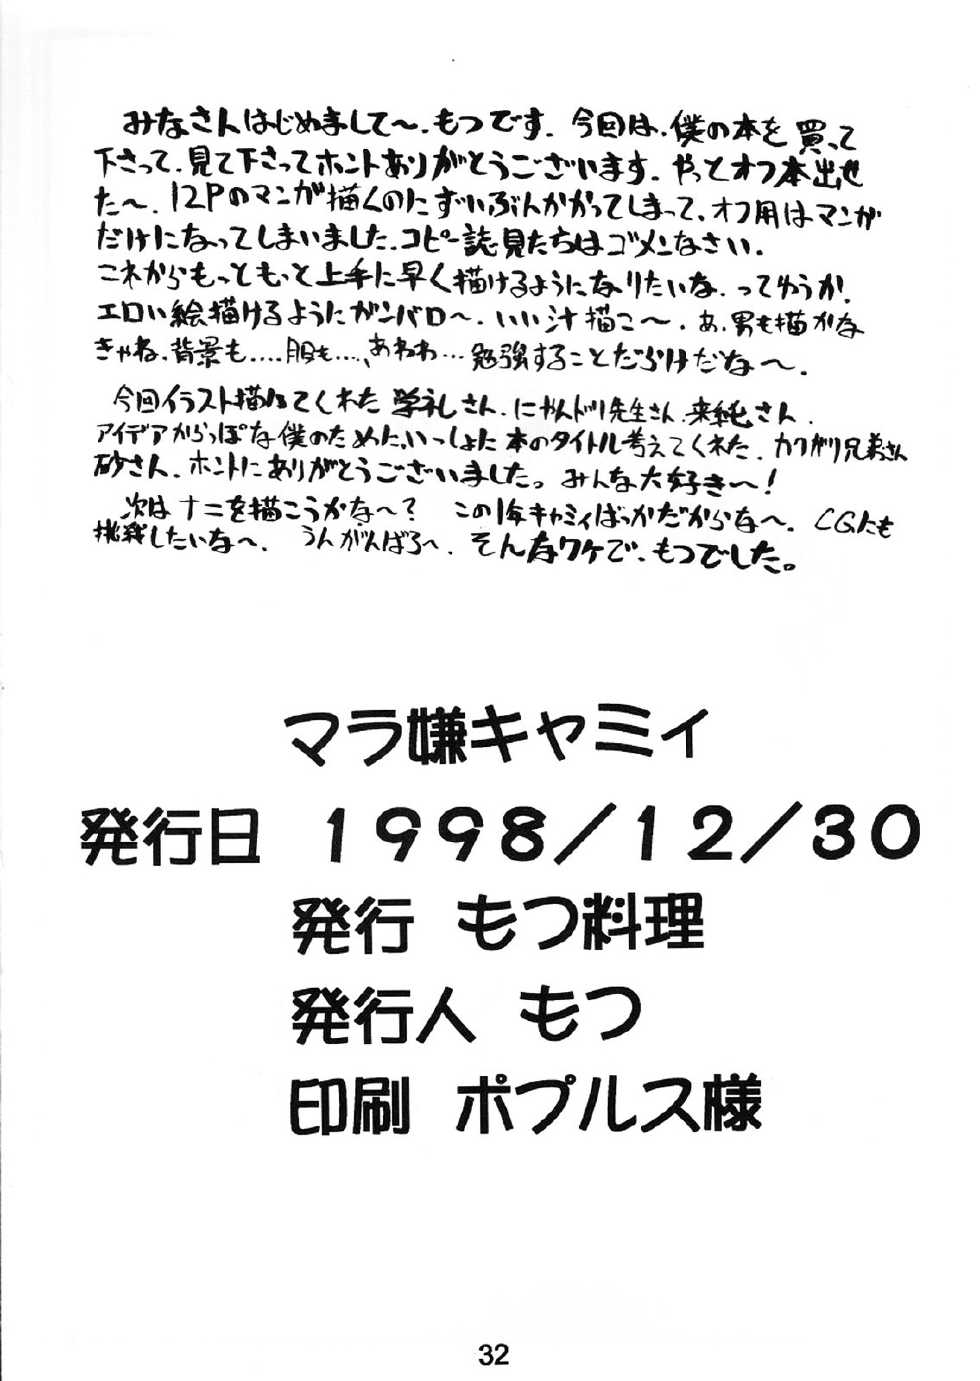 みなさんはじめまして〜、もつです、今回は、僕の本を買って
下さって、見て下さってホントありがとうございます、やっとオフ本出せ
た〜、12Pのマンガ描くのにずいぶんかかってしまって、オフ用はマンガ
だけになってしまいました、コピー誌見たちはゴメンなさい、
これからもっともっと上手に早く描けるようになりたいな、ってゆうか、
エロい絵描けるようにガンバロ〜、いい汁描こ〜、あ、男も描かな
きゃね、背景も....服も...、あわわ...勉強することだらけだな〜、
今回イラスト描いてくれた学礼さん、にゃんドリ先生さん、来純さん、
アイデアからっぽな僕のために、いっしょに本のタイトル考えてくれた、カワガリ兄弟さん
砂さん、ホントにありがとうございましたっみんな大好き〜!
次はナニを描こうかな〜? この1年キャミィばっかだからな〜、CGにも
挑戦したいな〜、うんがんばろ〜、そんなワケで、もつでした。
マラ嫌キャミィ
発行日 1998/12/30
発行 もつ料理
発行人 もつ
印刷 ポプルス様
32